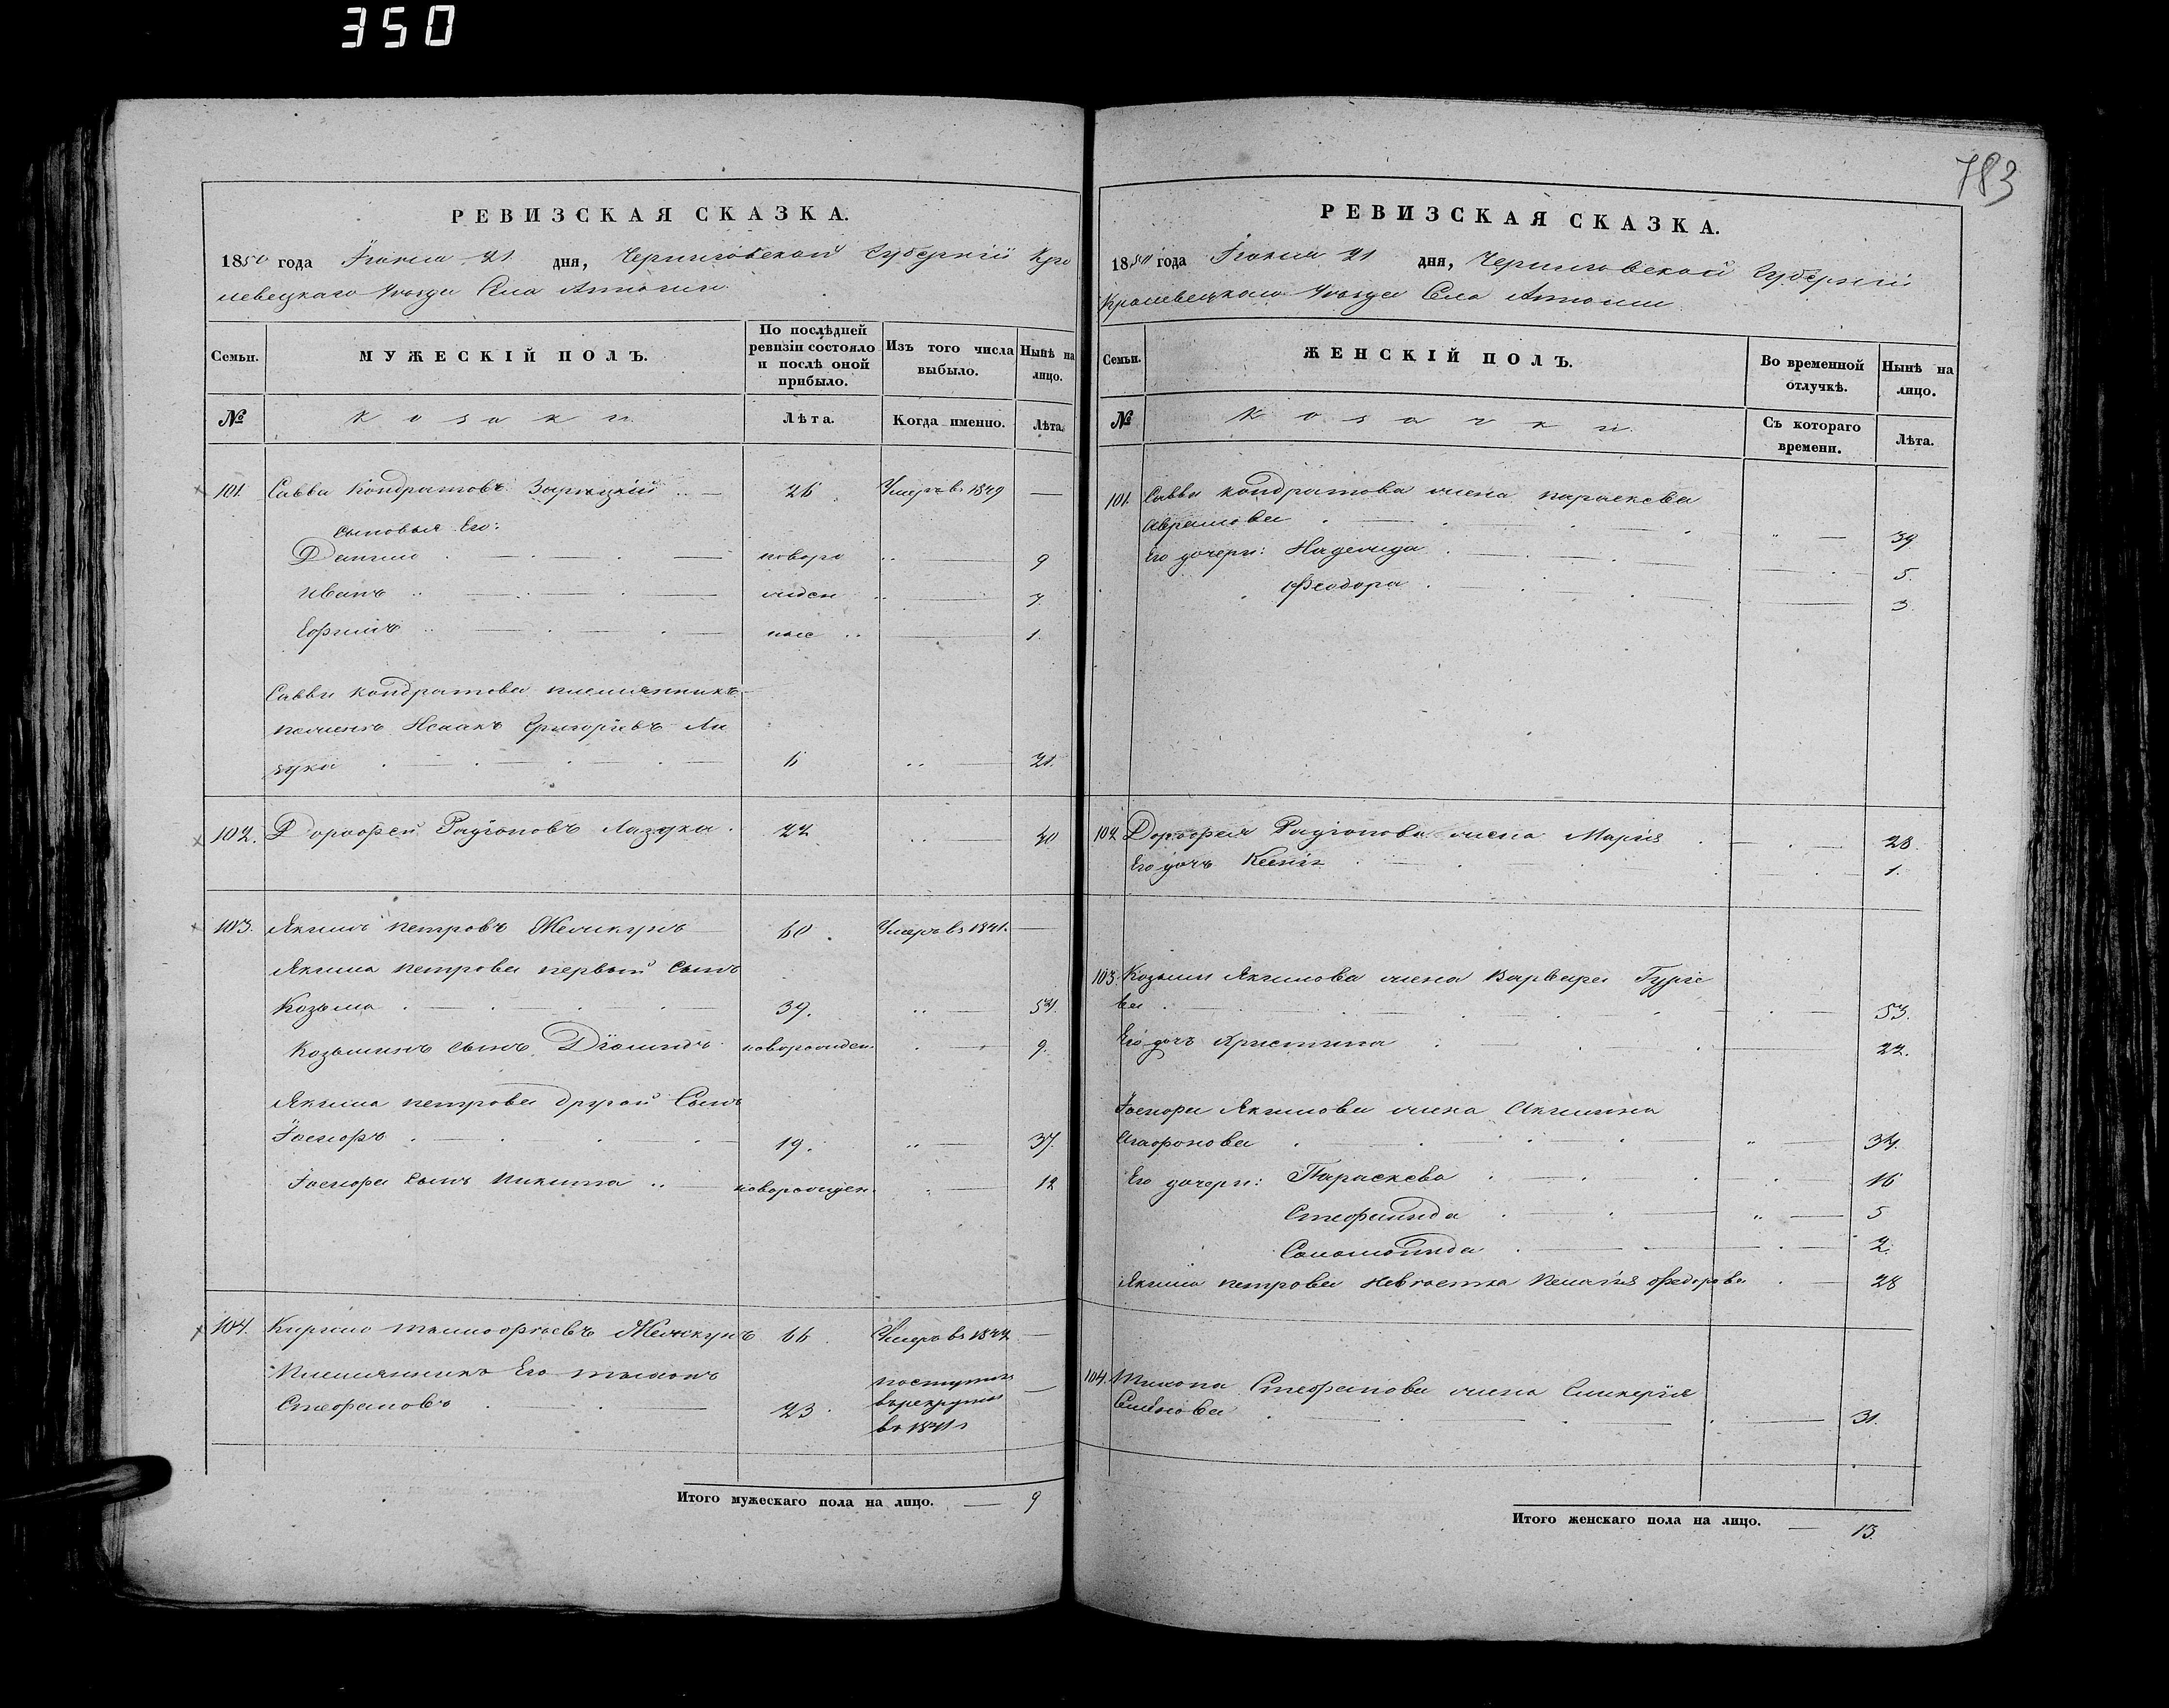 350
783
РЕВИЗСКАЯ СКАЗКА.
1850 года Іюня 21 дня, Черниговской Губерніи Кро
левецкаго Уѣзда Села
Семьи. МУЖЕСКІЙ ПОЛЪ. По послѣдней ревизіи состояло и послѣ оной прибыло. Изъ того числа выбыло. Нынѣ на лицо.
№ Козаки Лѣта. Когда именно. Лѣта.
101. Савва Кондратовъ 26 Умеръ въ 1849 —
сыновья Его:
Данило новоро 9
Иванъ жден 7.
Ефимъ ные 1.
Саввы Кондратова племянникъ
Исаакъ Григорьевъ Ла
зука 6 21.
102. Дорофей Радіоновъ Лазука 22 40
103. Якимъ Петровъ Межикунъ 60 Умеръ въ 1841. —
Якима Петрова первый Сынъ
Козьма 39. 51.
Козьминъ сынъ новорожден. 9.
Якима Петрова другой Сынъ
Іосифъ 19. 37.
Іосифа сынъ Никита новорожден. 12
104. Кирило Тимофѣевъ 66 Умеръ въ 1844 —
Племянникъ Его Тихонъ
Стефановъ 23 поступилъ
въ рекруты
въ 1841
Итого мужескаго пола на лицо. — 9
РЕВИЗСКАЯ СКАЗКА.
1850 года Іюня 21 дня, Черниговской Губерніи
Кролевецкаго Уѣзда Села
Семьи. ЖЕНСКІЙ ПОЛЪ. Во временной отлучкѣ. Нынѣ на лицо.
№ Козачки Съ котораго времени. Лѣта.
101. Саввы Кондратова жена Параскева
Абрамова 39
Его дочери: Надежда 5.
Феодора 3.
102 Дорофея Радіонова жена Марія 28.
Его дочь Ксенія 1.
103. Козьмы Якимова жена Варвара Гурiе
ва 53.
Его дочь Христина 22.
Іосифа Якимова жена Акилина
Агафонова 34.
Его дочери: Параскева 16
Стефанида 5
Соломонида 2.
Якима Петрова невѣстка Пелагія Федорова 28
104. Тихона Стефанова жена Гликерія
Семенова 31.
Итого женскаго пола на лицо. — 13.